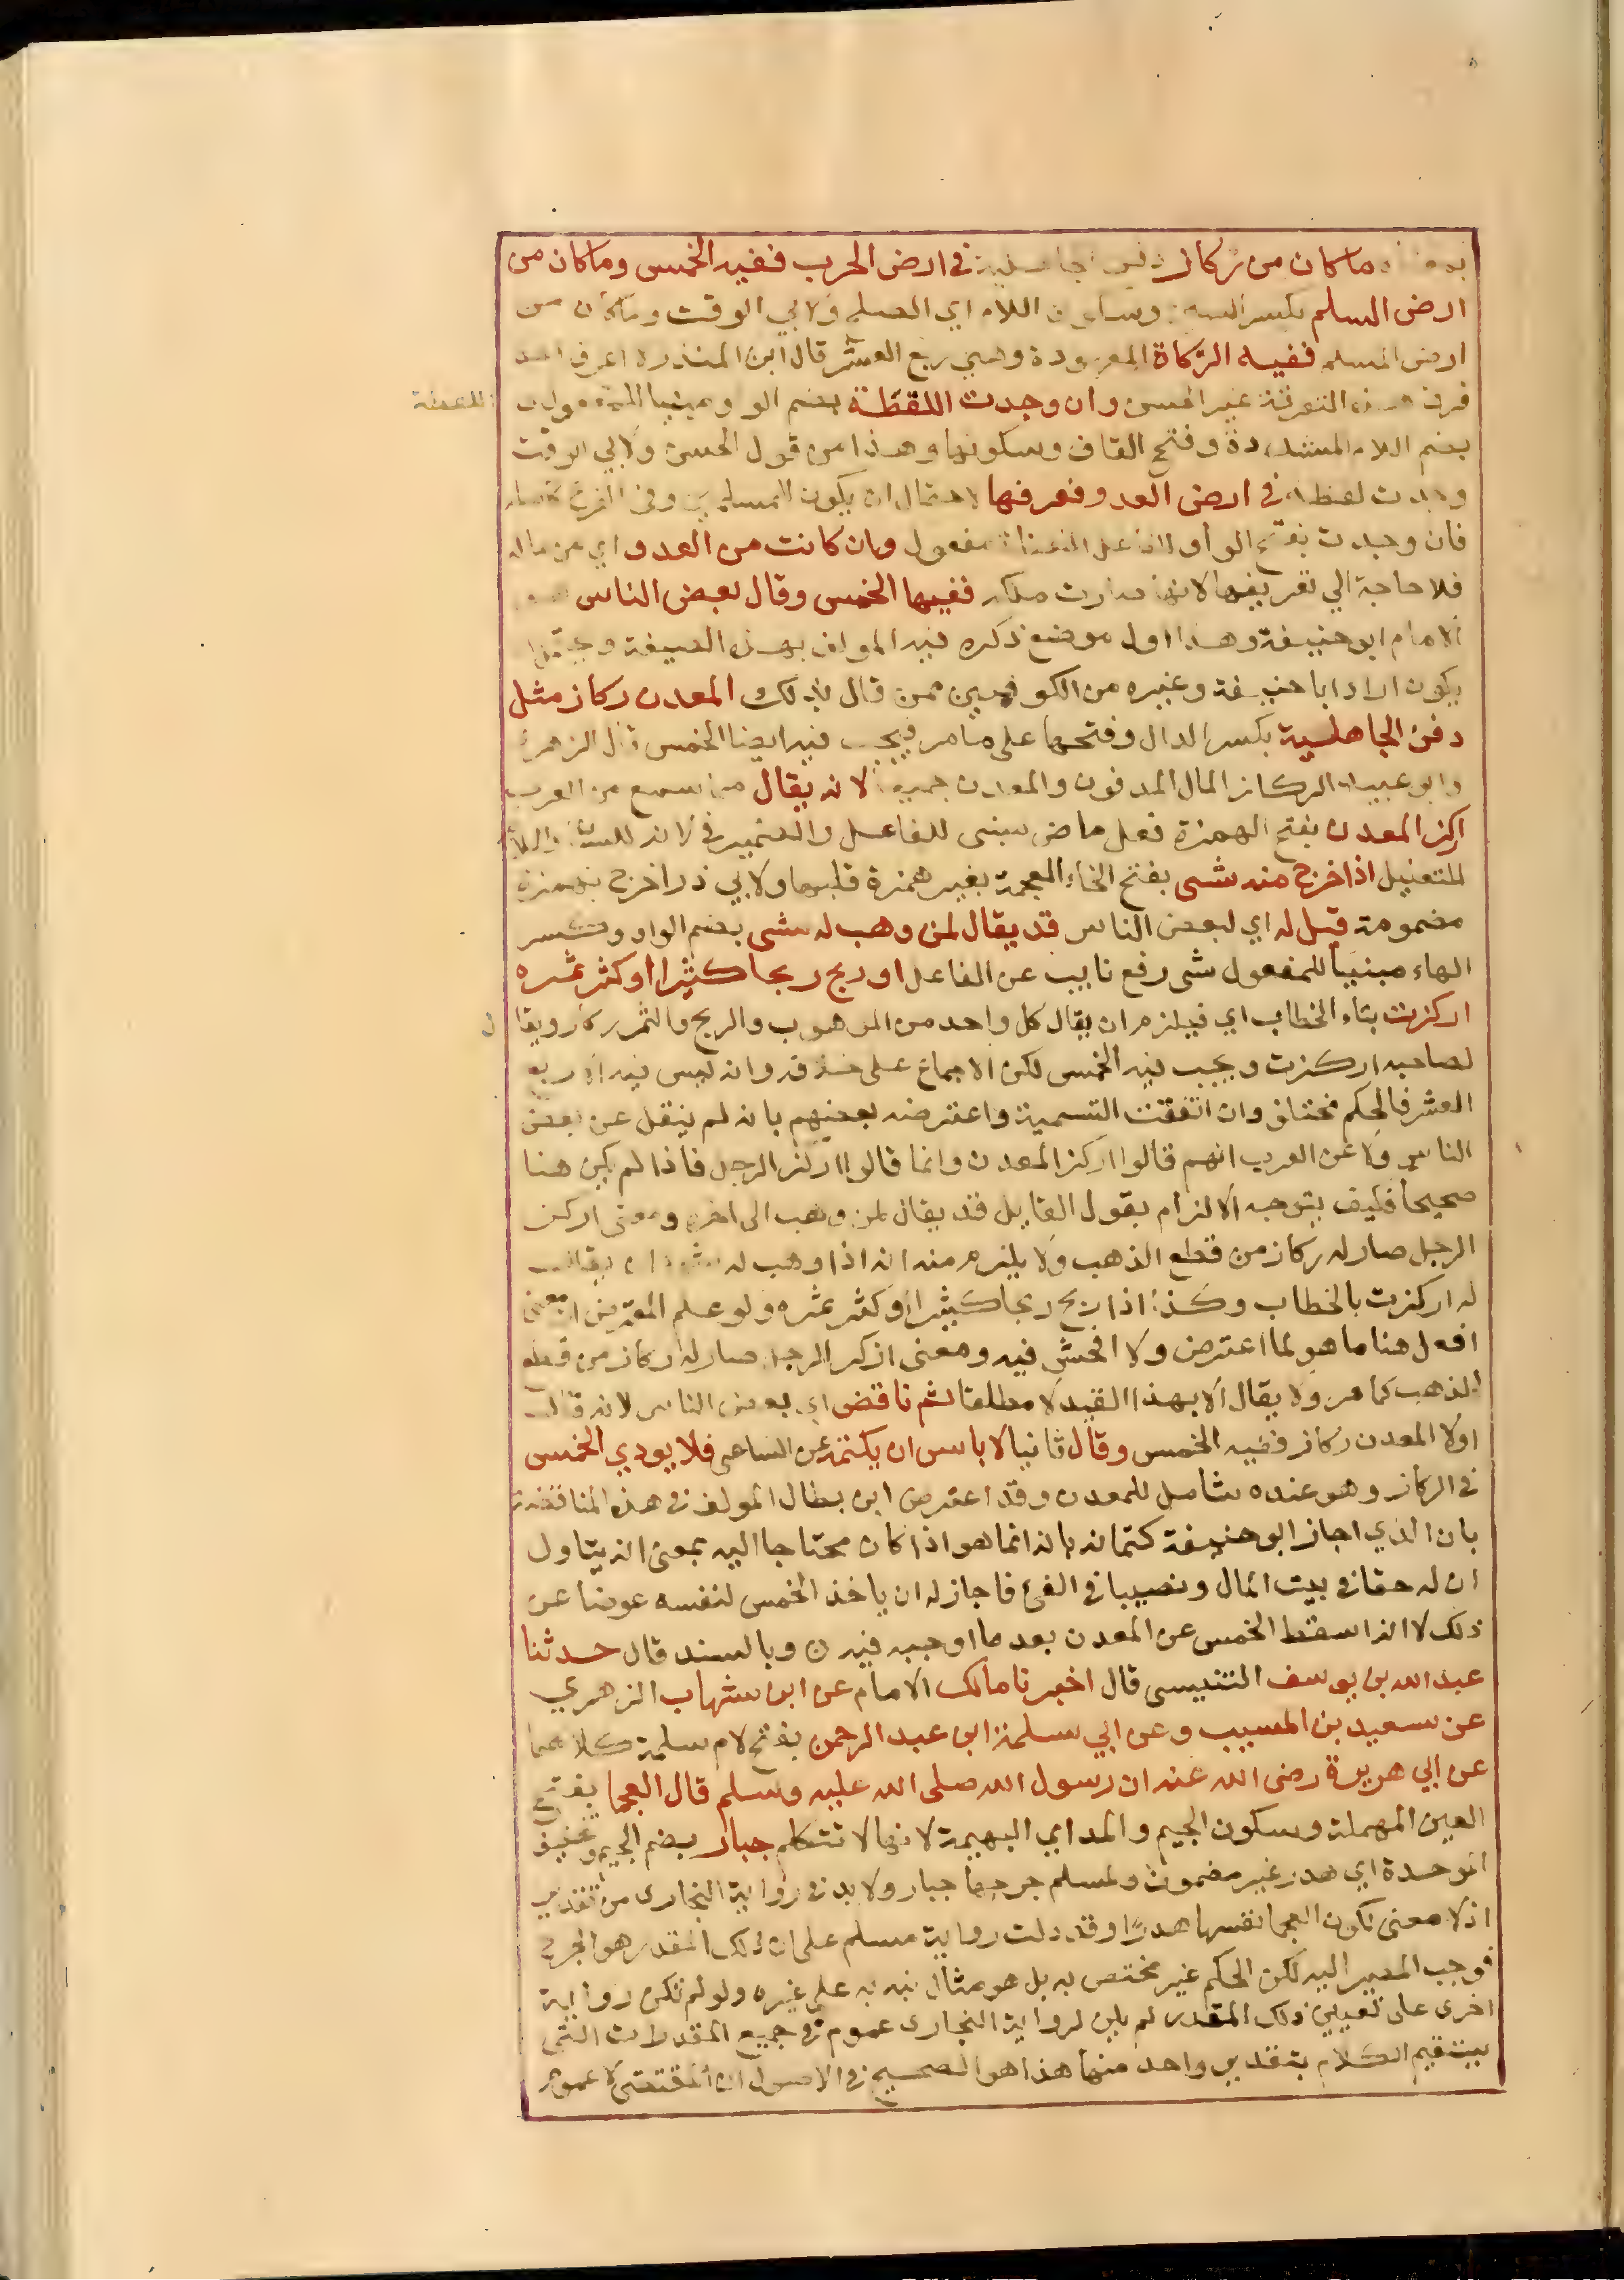 ما كان من ركاز في ارض الحرب ففيه الخمس وما كان من
ارض السلم بكسر السين وسكون اللام اي الصلح ولابي الوقت وما كان من
ارض السلم ففيه الزكاة المعهودة وهي ربع العشر قال ابن المنذر لا اعرف احد
فرق هذه التفرقة غير الحسن وان وجدت اللقطة بضم الواو مبنيا للمفعول
للقطة
بضم اللام المشددة وفتح القاف وسكونها وهذا من قول الحسن ولابي الوقت
وجدت لقطة في ارض العدو فعرفها لاحتمال ان يكون للمسلمين وفي الفرع
فان وجدت بفتح الواو مفعول وان كانت من العدو اي من ماله
فلا حاجة الي تعريفها لانها صارت ملكه ففيها الخمس وقال بعض الناس هو
الامام ابو حنيفة وهذا اول موضع ذكره فيه المولف بهذه الصيغة ويحتمل ان
يكون اراد ابا حنيفة وغيره من الكوفيين ممن قال بذلك المعدن ركاز مثل
دفن الجاهلية بكسر الدال وفتحها على ما مر فيجب فيه ايضا الخمس قال الزهري
وابو عبيد الركاز المال المدفون والمعدن جميعا لانه يقال مما سمع من العرب
اركز المعدن بفتح الهمزة فعل ماض مبنى للفاعل والضمير في لانه للشان واللام
للتعليل اذا خرج منه شى بفتح الخاء المعجمة بغير همزة قبلها ولابي ذر اخرج بهمزة
مضمومة قيل له اي لبعض الناس قد يقال لمن وهب له شى بضم الواو وكسر
الهاء مبنيا للمفعول شى رفع نايب عن الفاعل او ربح ربحا كثيرا او كثر ثمره
اركزت بتاء الخطاب اي فيلزم ان يقال كل واحد من الموهوب والربح والثمر ركاز ويقا
ل
لصاحبه اركزت ويجب فيه الخمس لكن الاجماع على خلافه وانه ليس فيه الا ربع
العشر فالحكم مختلف وان اتفقت التسمية واعترضه بعضهم بانه لم ينقل عن بعض
الناس ولا عن العرب انهم قالوا اركز المعدن وانما قالوا اركز الرجل فاذا لم يكن هنا
صحيحا فكيف يتوجه الالزام بقول القايل قد يقال لمن وهب الى اخره ومعنى اركز
الرجل صار له ركاز من قطع الذهب ولا يلزم منه انه اذا وهب له شى ان يقال
له اركزت بالخطاب وكذا اذا ربح ربحا كثيرا او كثر ثمره ولو علم المعترض ان معنى
افعل هنا ما هو لما اعترض ولا افحش فيه ومعنى اركز الرجل صار له ركاز من قطع
الذهب كما مر ولا يقال الا بهذا القيد لا مطلقا ثم ناقض اي بعض الناس لانه قال
اولا المعدن ركاز ففيه الخمس وقال ثانيا لا باس ان يكتمه عن الساعى فلا يودي الخمس
في الركاز وهو عنده شامل للمعدن وقد اعترض ابن بطال المولف في هذه المناقضة
بان الذي اجاز ابو حنيفة كتمانه بانه انما هو اذا كان محتاجا اليه بمعنى انه يتاول
ان له حقا في بيت المال ونصيبا في الفئ فاجاز له ان ياخذ الخمس لنفسه عوضا عن
ذلك لا انه اسقط الخمس عن المعدن بعد ما اوجبه فيه ن وبالسند قال حدثنا
عبد الله بن يوسف التنيسى قال اخبرنا مالك الامام عن ابن شهاب الزهري
عن سعيد بن المسيب وعن ابي سلمة ابن عبد الرحمن بفتح لام سلمة كلاهما
عن ابي هريرة رضى الله عنه ان رسول الله صلى الله عليه وسلم قال العجما بفتح
العين المهملة وسكون الجيم والمد اي البهيمة لانها لا تتكلم جبار بضم الجيم وتخفيف
الموحدة اي هدر غير مضمون ولمسلم جرحها جبار ولا بد في رواية البخارى من تقدير
اذ لا معنى لكون العجما نفسها هدرا وقد دلت رواية مسلم على ان ذلك المقدر هو الجرح
فوجب المصير اليه لكن الحكم غير مختص به بل هو مثال نبه به على غيره ولو لم تكن رواية
اخرى على تعيين ذلك المقدر لم يكن لرواية البخارى عموم في جميع المقدرات التى
يستقيم الكلام بتقدير واحد منها هذا هو الصحيح في الاصول ان المقتضى لا عموم